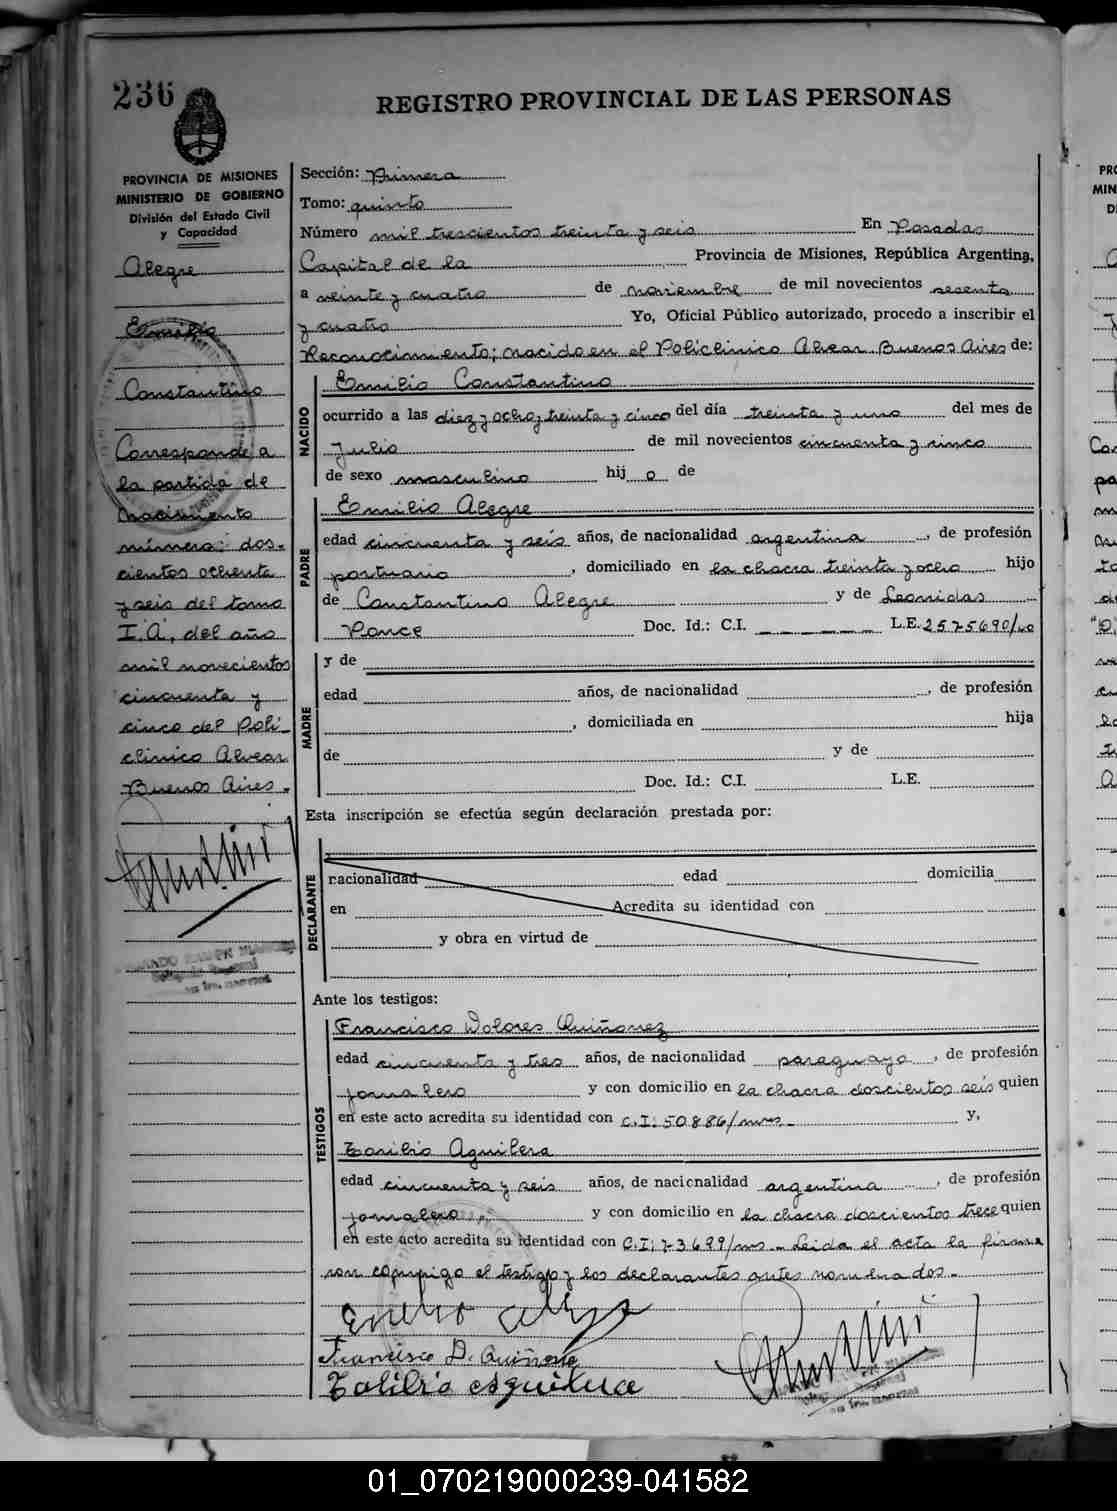 236
REGISTRO PROVINCIAL DE LAS PERSONAS
PROVINCIA DE MISIONES
MINISTERIO DE GOBIERNO
División del Estado Civil
y Capacidad
Alegre
Emilio
Constantino
Corresponde a
la partida de
nacimiento
número: dos-
cientos ochenta
y seis del tomo
I.A, del año
mil novecientos
cincuenta y
cinco del Poli-
clinico Alvear
Buenos Aires.
Sección: Primera
Tomo: quinto
Número mil trescientos treinta y seis En Posadas
Capital de la Provincia de Misiones, República Argentina,
a veinte y cuatro de noviembre de mil novecientos sesenta
y cuatro Yo, Oficial Público autorizado, procedo a inscribir el
Reconocimiento; nacido en el Policlinico Alvear Buenos Aires de:
NACIDO
Emilio Constantino
ocurrido a las diez y ocho y treinta y cinco del día treinta y uno del mes de
Julio de mil novecientos cincuenta y cinco
de sexo masculino hij o de
PADRE
Emilio Alegre
edad cincuenta y seis años, de nacionalidad argentina, de profesión
portuario, domiciliado en la chacra treinta y ocho hijo
de Constantino Alegre y de Leonidas
Ponce Doc. Id.: C.I. L.E. 2575690/
MADRE
y de
edad años, de nacionalidad , de profesión
, domiciliada en hija
de y de
Doc. Id.: C.I. L.E.
Esta inscripción se efectúa según declaración prestada por:
DECLARANTE
nacionalidad edad domicilia
en Acredita su identidad con
y obra en virtud de
Ante los testigos:
TESTIGOS
Francisco Dolores Quiñonez
edad cincuenta y tres años, de nacionalidad paraguaya, de profesión
jornalero y con domicilio en la chacra doscientos seis quien
en este acto acredita su identidad con C.I: 50886/mns. y,
Toribio Aguilera
edad cincuenta y seis años, de nacionalidad argentina, de profesión
jornalero y con domicilio en la chacra doscientos trece quien
en este acto acredita su identidad con C.I: 73699/mns. Leida el acta la firma
con conmigo el testigo y los declarantes antes nombrados.
Emilio Alegre
Francisco D. Quiñone
Toribio Aguilera
01_070219000239-041582